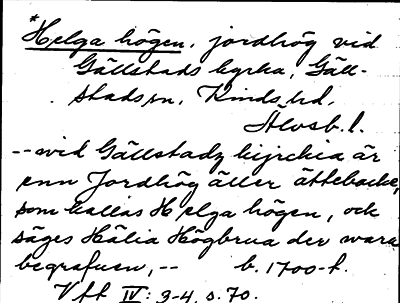 *Helga högen, jordhög vid
Gällstads kyrka, Gäll-
stads sn, Kinds hd,
Älvsb. l.
-- wid Gällstadz kijrckia är
enn Jordhög äller ättebacke,
som kallas Helga högen, och
säges Hälia Högbrua der wara
begrafuen, -- b. 1700-t.
Vft IV: 3-4, s. 70.